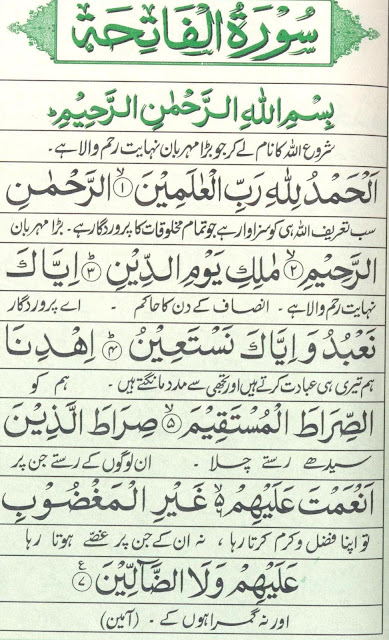 سُوْرَةُ الْفَاتِحَة
بِسْمِ اللهِ الرَّحْمٰنِ الرَّحِيْمِ
شروع اللہ کا نام لے کر جو بڑا مہربان نہایت رحم والا ہے۔
اَلْحَمْدُ لِلّٰهِ رَبِّ الْعٰلَمِيْنَ ۙ﴿۱﴾ الرَّحْمٰنِ
سب تعریف اللہ ہی کو سزاوار ہے جو تمام مخلوقات کا پروردگار ہے۔ بڑا مہربان
الرَّحِيْمِ ۙ﴿۲﴾ مٰلِكِ يَوْمِ الدِّيْنِ ؕ﴿۳﴾ اِيَّاكَ
نہایت رحم والا ہے۔ انصاف کے دن کا حاکم ۔ اے پروردگار
نَعْبُدُ وَ اِيَّاكَ نَسْتَعِيْنُ ؕ﴿۴﴾ اِهْدِنَا
ہم تیری ہی عبادت کرتے ہیں اور تجھی سے مدد مانگتے ہیں۔ ہم کو
الصِّرَاطَ الْمُسْتَقِيْمَ ۙ﴿۵﴾ صِرَاطَ الَّذِيْنَ
سیدھے رستے چلا ۔ ان لوگوں کے رستے جن پر
اَنْعَمْتَ عَلَيْهِمْ ۙ۬۶ غَيْرِ الْمَغْضُوْبِ
تو اپنا فضل و کرم کرتا رہا ، نہ ان کے جن پر غصے ہوتا رہا
عَلَيْهِمْ وَلَا الضَّآلِّيْنَ ﴿۷﴾ ع
اور نہ گمراہوں کے ۔ (آمین)